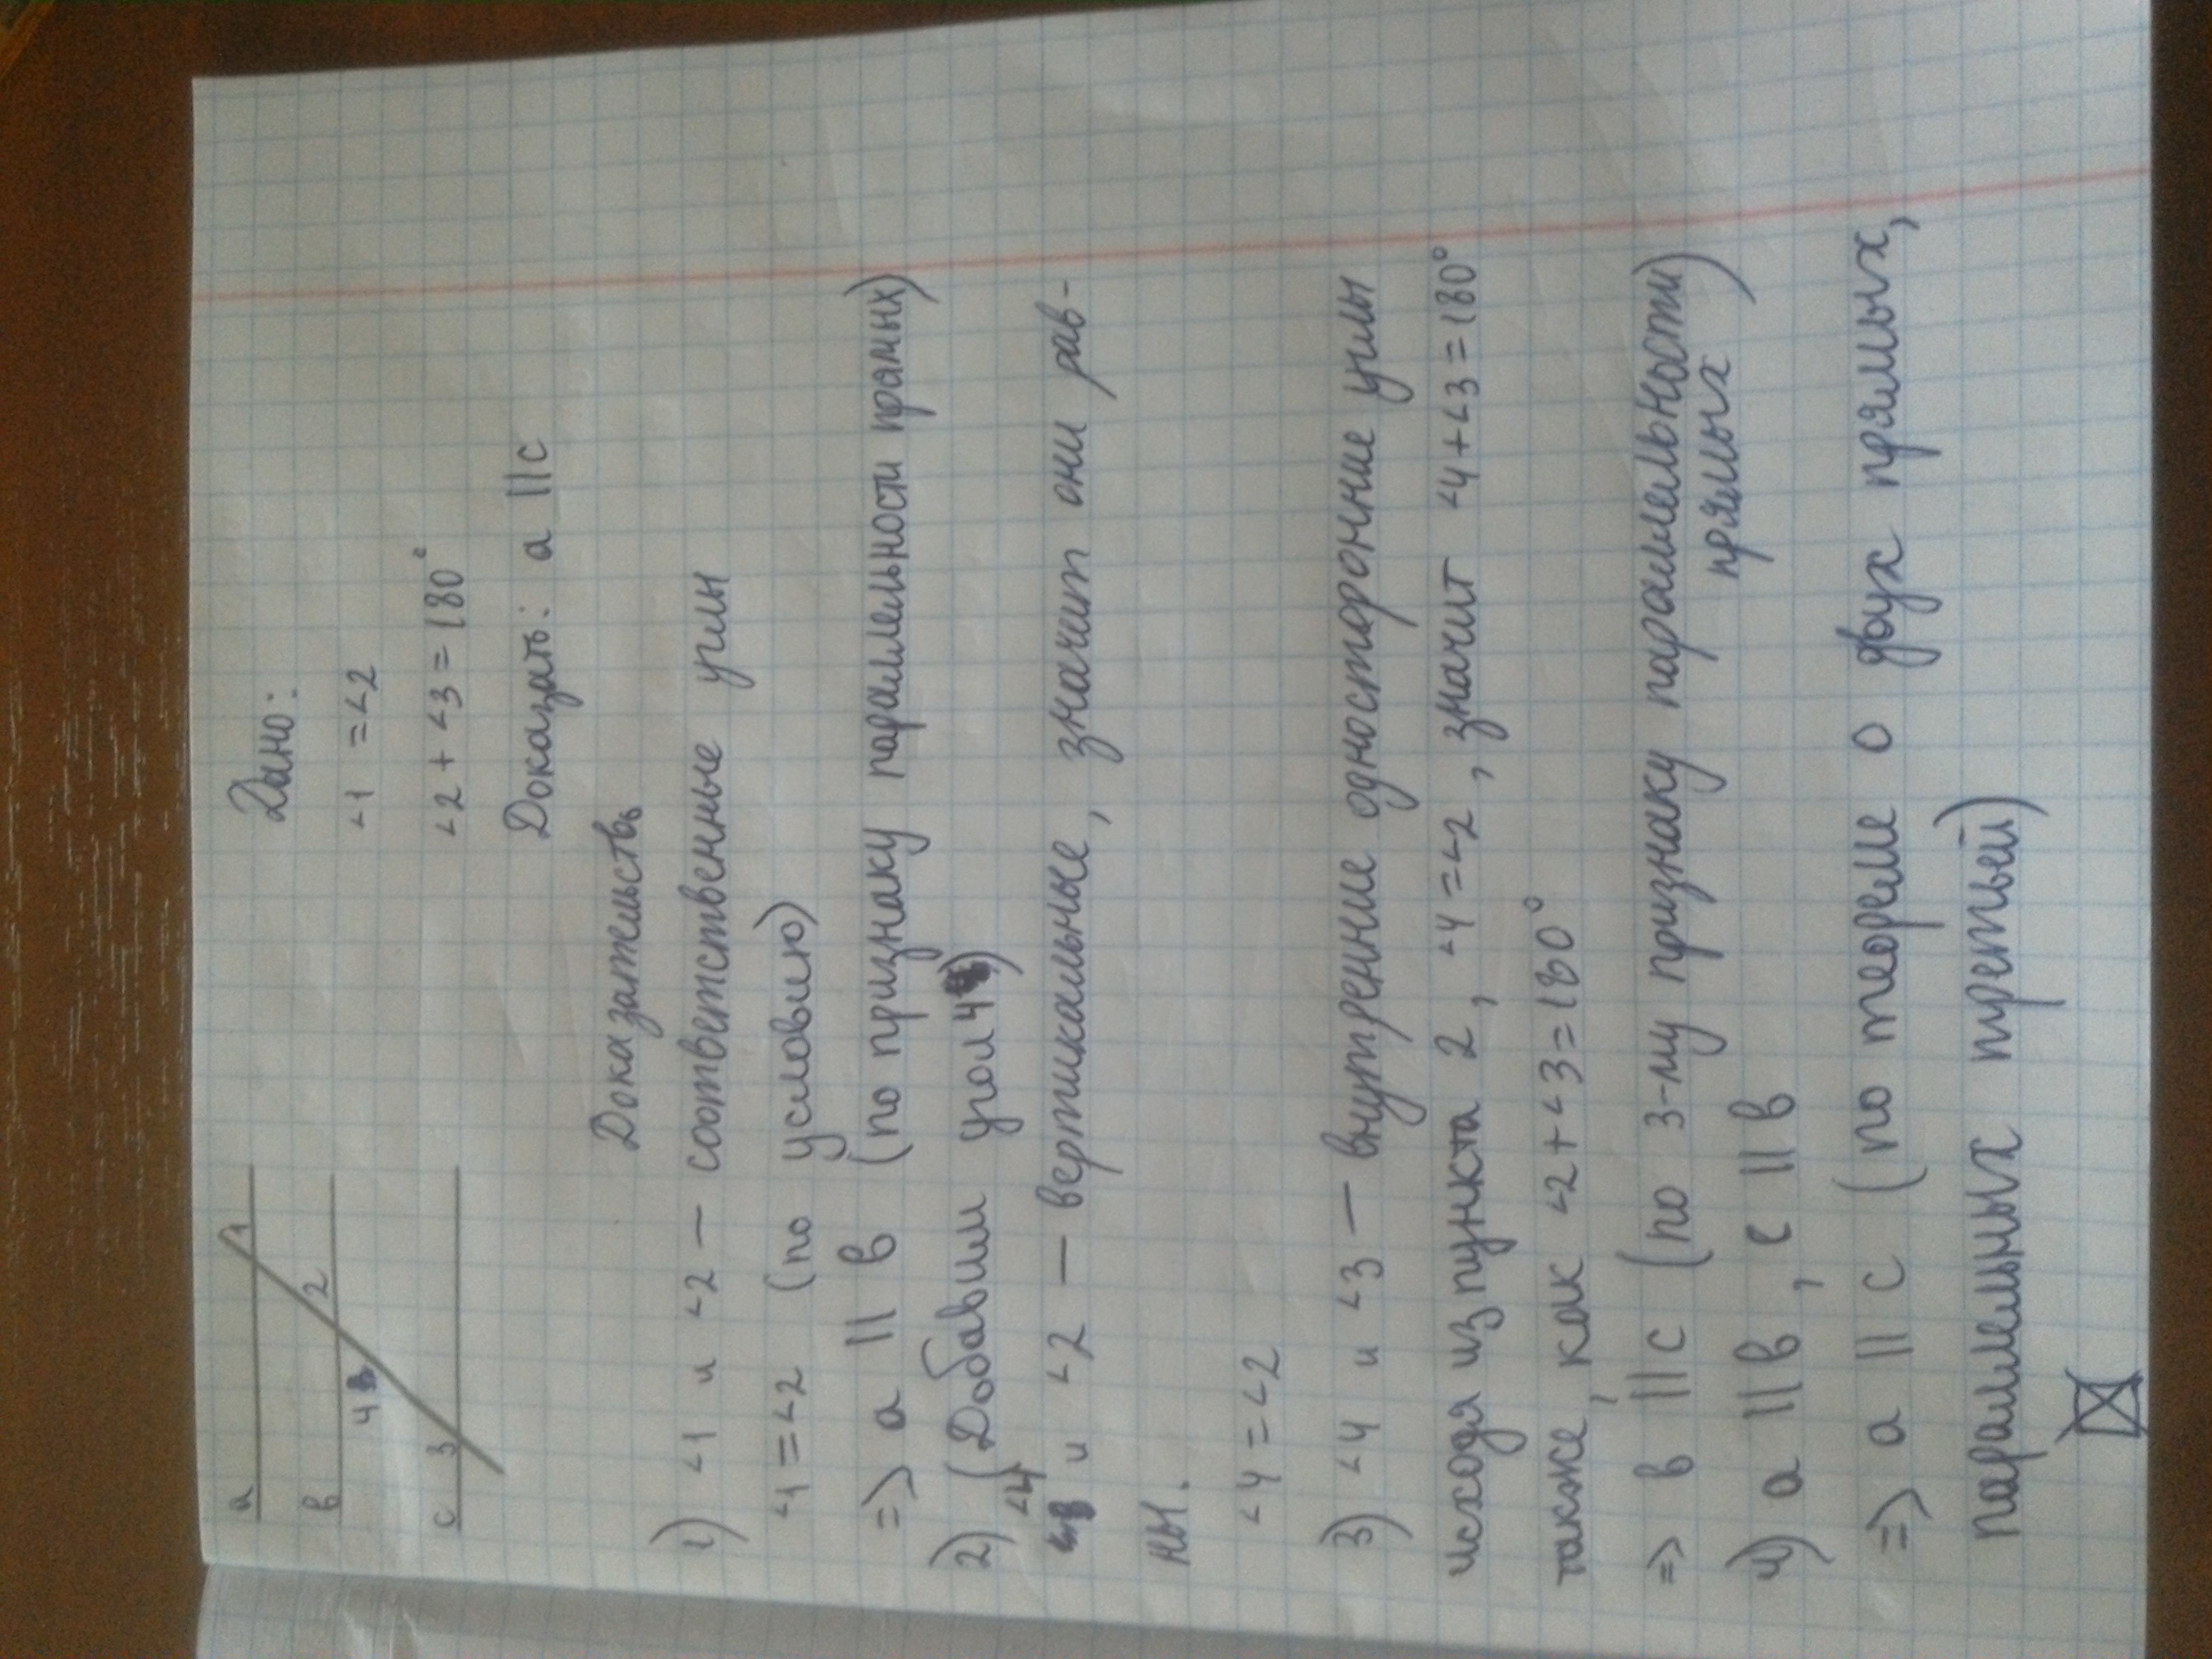 a
в
с
1
2
4
3
Дано:
∠1 = ∠2
∠2 + ∠3 = 180°
Доказать: а || с
Доказательств
1) ∠1 и ∠2 — соответственные углы
∠1 = ∠2 (по условию)
=> а || в (по признаку паралельности прямых)
2) (Добавим угол 4)
∠4 и ∠2 — вертикальные, значит они рав-
ны.
∠4 = ∠2
3) ∠4 и ∠3 — внутренние односторонние углы
исходя из пункта 2, ∠4 = ∠2, значит ∠4+∠3=180°
также, как ∠2+∠3=180°
=> в || с (по 3-му признаку параллельности
прямых)
4) а || в, с || в
=> а || с (по теореме о двух прямых,
параллельных третьей)